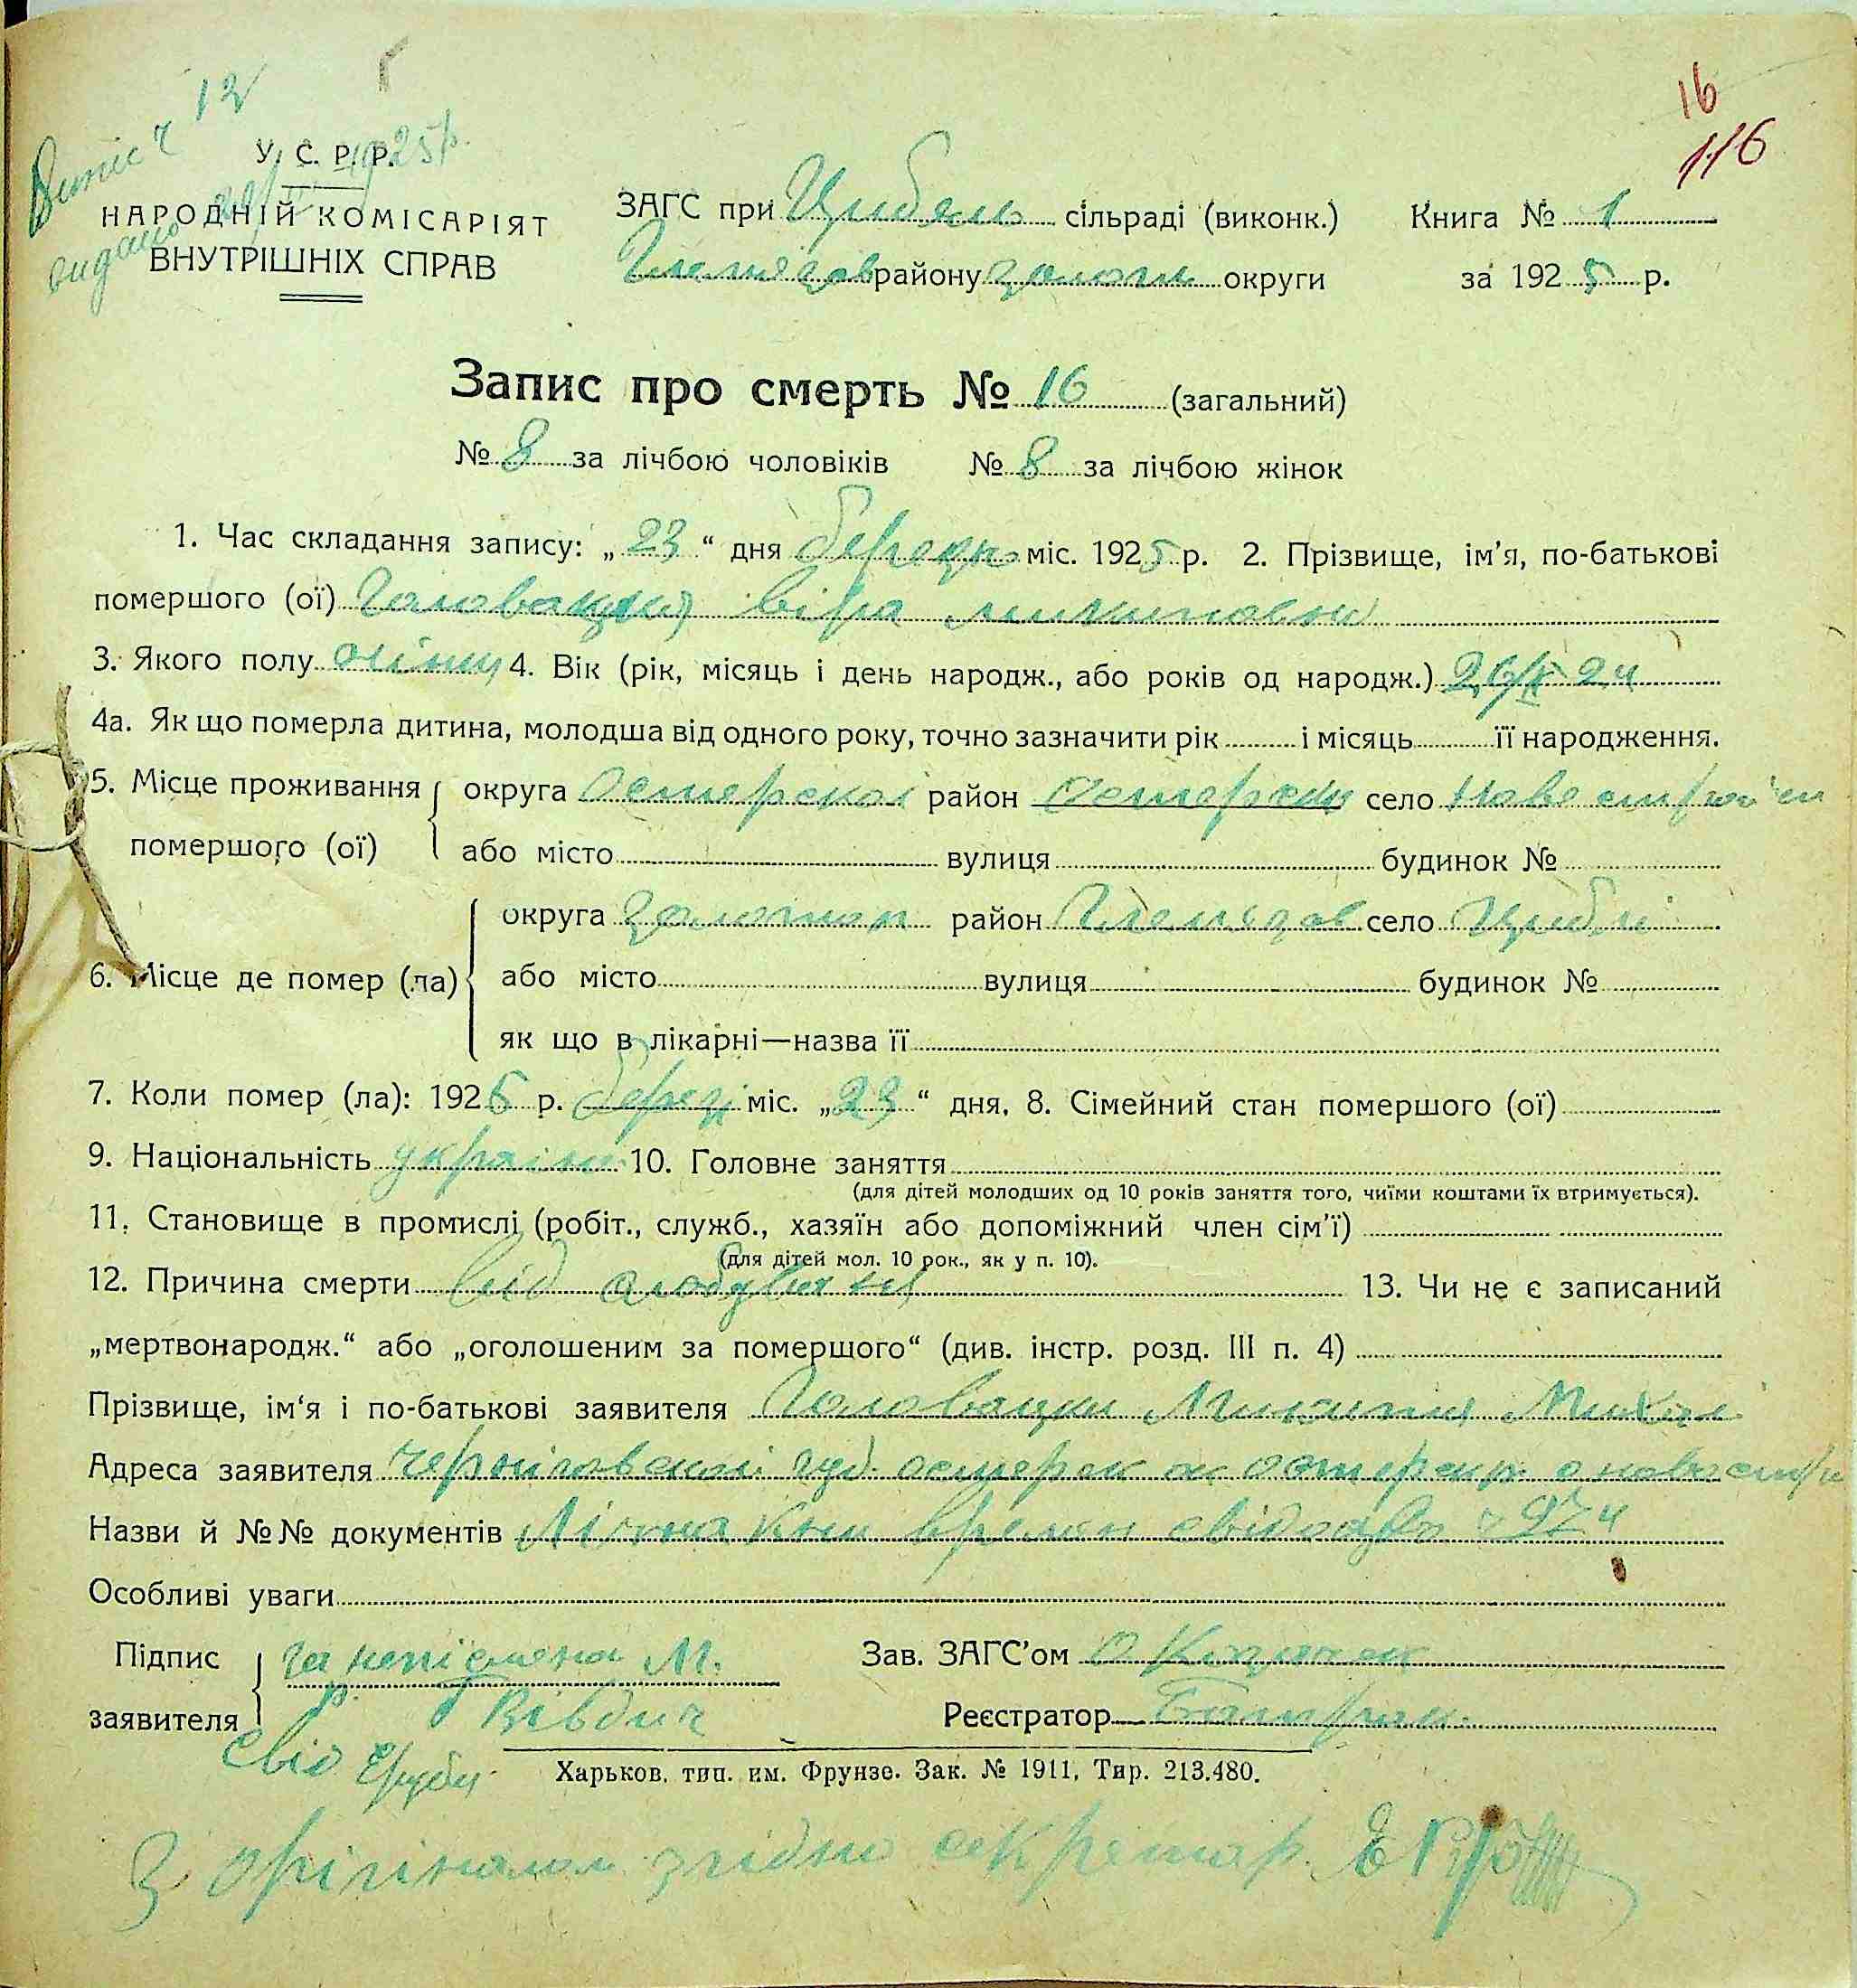 16
116
12
Випис ч
видано
У. С. Р. Р.
1925 р.
НАРОДНІЙ КОМІСАРІЯТ
ВНУТРІШНІХ СПРАВ
ЗАГС при сільраді (виконк.) Книга № 1
району золот округи за 1925 р.
Запис про смерть № 16 (загальний)
№ 8 за лічбою чоловіків № 8 за лічбою жінок
1. Час складання запису: „ 23 “ дня березн міс. 1925 р. 2. Прізвище, ім’я, по-батькові
помершого (ої) Головацка віра микитовни
3. Якого полу жіночу 4. Вік (рік, місяць і день народж., або років од народж.) 24
4а. Як що померла дитина, молодша від одного року, точно зазначити рік і місяць її народження.
5. Місце проживання округа Остерскої район Остерски село
помершого (ої) або місто вулиця будинок №
округа золотон район село Цибл
6. Місце де помер (ла) або місто вулиця будинок №
як що в лікарні—назва її
7. Коли помер (ла): 1925 р. березі міс. „ 23 “ дня. 8. Сімейний стан помершого (ої)
9. Національність україн 10. Головне заняття
(для дітей молодших од 10 років заняття того, чиїми коштами їх втримується).
11. Становище в промислі (робіт., служб., хазяїн або допоміжний член сім’ї)
(для дітей мол. 10 рок., як у п. 10).
12. Причина смерти від 13. Чи не є записаний
„мертвонародж.“ або „оголошеним за помершого“ (див. інстр. розд. III п. 4)
Прізвище, ім‘я і по-батькові заявителя Головацки Микита Михай
Адреса заявителя Черніговскої губ. остерск ок остерск р. с
Назви й №№ документів Лічна кни времен свідоцтво ч 974
Особливі уваги
Підпис за неписьмена М. Зав. ЗАГС’ом О
заявителя Вівдич Реєстратор
Свід
Харьков. тип. им. Фрунзе. Зак. № 1911, Тир. 213.480.
З орігіналом згідно секретар